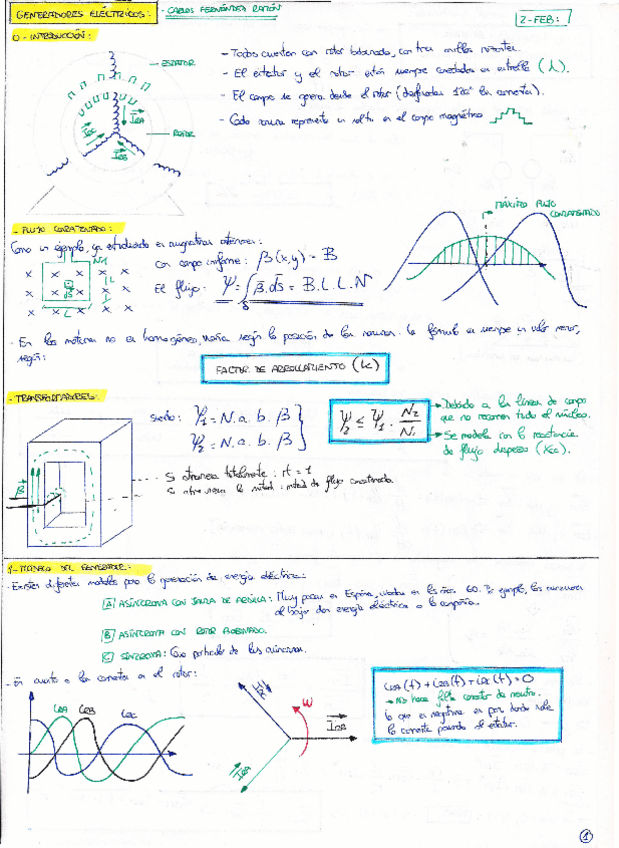 GENERADORES ELÉCTRICOS: - CARLOS FERNÁNDEZ RATÓN
2-FEB:
0- INTRODUCCIÓN:
ESTATOR
ROTOR
- Todos cuentan con rotor bobinado, con tres anillos rozantes.
- El estator y el rotor están siempre conectados en estrella (λ).
- El campo se genera desde el rotor (desfasadas 120° las corrientes).
- Cada ranura representa un salto en el campo magnético
- FLUJO CONCATENADO:
MÁXIMO FLUJO
CONCATENADO
Como un ejemplo, ya estudiado en asignaturas anteriores:
Con campo uniforme: β(x,y) = B
El flujo: Ψ = ∫ β.ds = B.L.L.N
- En las motores no es homogéneo, varía según la posición de las ranuras. La fórmula es siempre un valor menor,
según:
FACTOR DE ARROLLAMIENTO (k)
- TRANSFORMADORES:
siendo: Ψ1 = N.a.b.β
Ψ2 = N.a.b.β
Ψ2 ≤ Ψ1 . N2/N1
Debido a las líneas de campo
que no recorren todo el núcleo.
Se modela con la reactancia
de flujo disperso (Xcc).
Si atraviesa totalmente: rt = 1
Si atraviesa la mitad: mitad de flujo concatenado
1- MODELO DEL GENERADOR:
- Existen diferentes modelos para la generación de energía eléctrica:
A ASÍNCRONA CON JAULA DE ARDILLA: Muy pocas en España, usadas en los años 60. Por ejemplo, los ascensores
al bajar dan energía eléctrica a la compañía.
B ASÍNCRONA CON ROTOR BOBINADO.
C SÍNCRONA: Caso particular de las asíncronas.
- En cuanto a la corriente en el rotor:
iRA iRB iRC
ω
IRA
iRA(t) + iRB(t) + iRC(t) = 0
No hace falta conector de neutro.
lo que es negativo es por donde sale
la corriente pasando al estator.
1